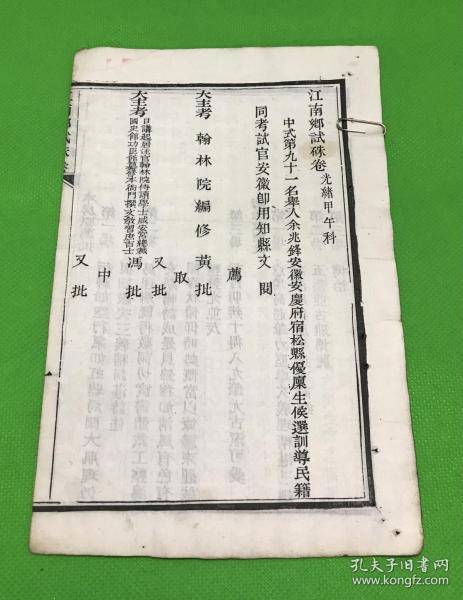 江南鄉試硃卷 光緒甲午科
中式第九十一名舉人余兆鋒安徽安慶府宿松縣優廩生候選訓導民籍
同考試官安徽卽用知縣文 閱
薦
大主考 翰林院編修 黃 批
取
又批
大主考 日講起居注官翰林院侍讀學士咸安宮總裁 國史館功臣館纂修本衙門撰文教習庶吉士 馮 批
中
又批
孔夫子旧书网
www.kongfz.com